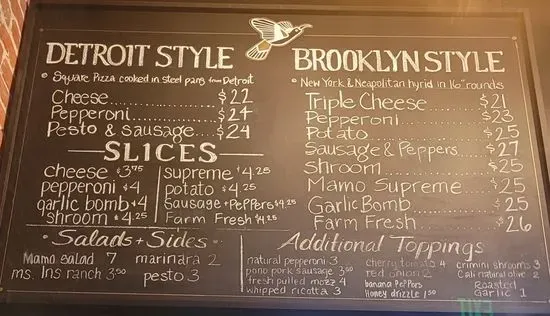 DETROIT STYLE
• Square Pizza cooked in steel pans from Detroit
Cheese..............$22
Pepperoni...........$24
Pesto & Sausage.....$24
SLICES
cheese $3.75
pepperoni $4
garlic bomb $4
shroom $4.25
supreme $4.25
potato $4.25
Sausage + Peppers $4.25
Farm Fresh $4.25
• Salads + Sides •
Mamo salad 7
ms. Ins ranch 3.50
marinara 2
pesto 3
BROOKLYN STYLE
• New York & Neapolitan hyrid in 16" rounds
Triple Cheese.......$21
Pepperoni...........$23
Potato..............$25
Sausage & Peppers...$27
shroom..............$25
Mamo Supreme........$25
Garlic Bomb.........$25
Farm Fresh..........$26
Additional Toppings
natural pepperoni 3
pono pork sausage 3.50
fresh pulled mozz 4
whipped ricotta 3
cherry tomato 4
red onion 2
banana Peppers
Honey drizzle 1.50
crimini shrooms 3
Cali natural olive 2
Roasted
Garlic 1